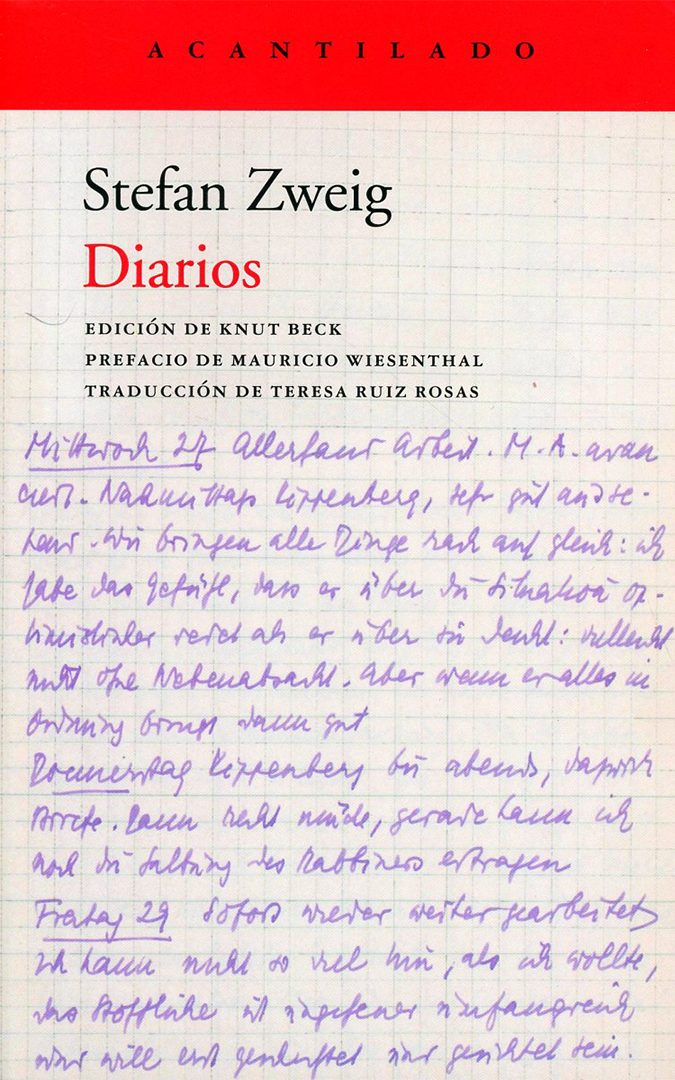 ACANTILADO
Stefan Zweig
Diarios
EDICIÓN DE KNUT BECK
PREFACIO DE MAURICIO WIESENTHAL
TRADUCCIÓN DE TERESA RUIZ ROSAS
Mittwoch 27 Allerhand Arbeit. M. A. avan
ciert. Nachmittags Kippenberg, sehr gut
Wir bringen alle Dinge rasch auf gleich: ich
habe das Gefühl, dass er über die Situation op-
timistischer redet als er über sie denkt: vielleicht
nicht ohne Nebenabsicht. Aber wenn er alles in
Ordnung bringt dann gut
Donnerstag Kippenberg bis abends, dazwisch
Briefe. Dann recht müde, gerade kann ich
noch die des Rabbiners ertragen
Freitag 29 Sofort wieder weitergearbeitet
Ich kann nicht so viel hin, als ich wollte,
das Stoffliche ist ungeheuer umfangreich
und will erst gesichtet und gerichtet sein.